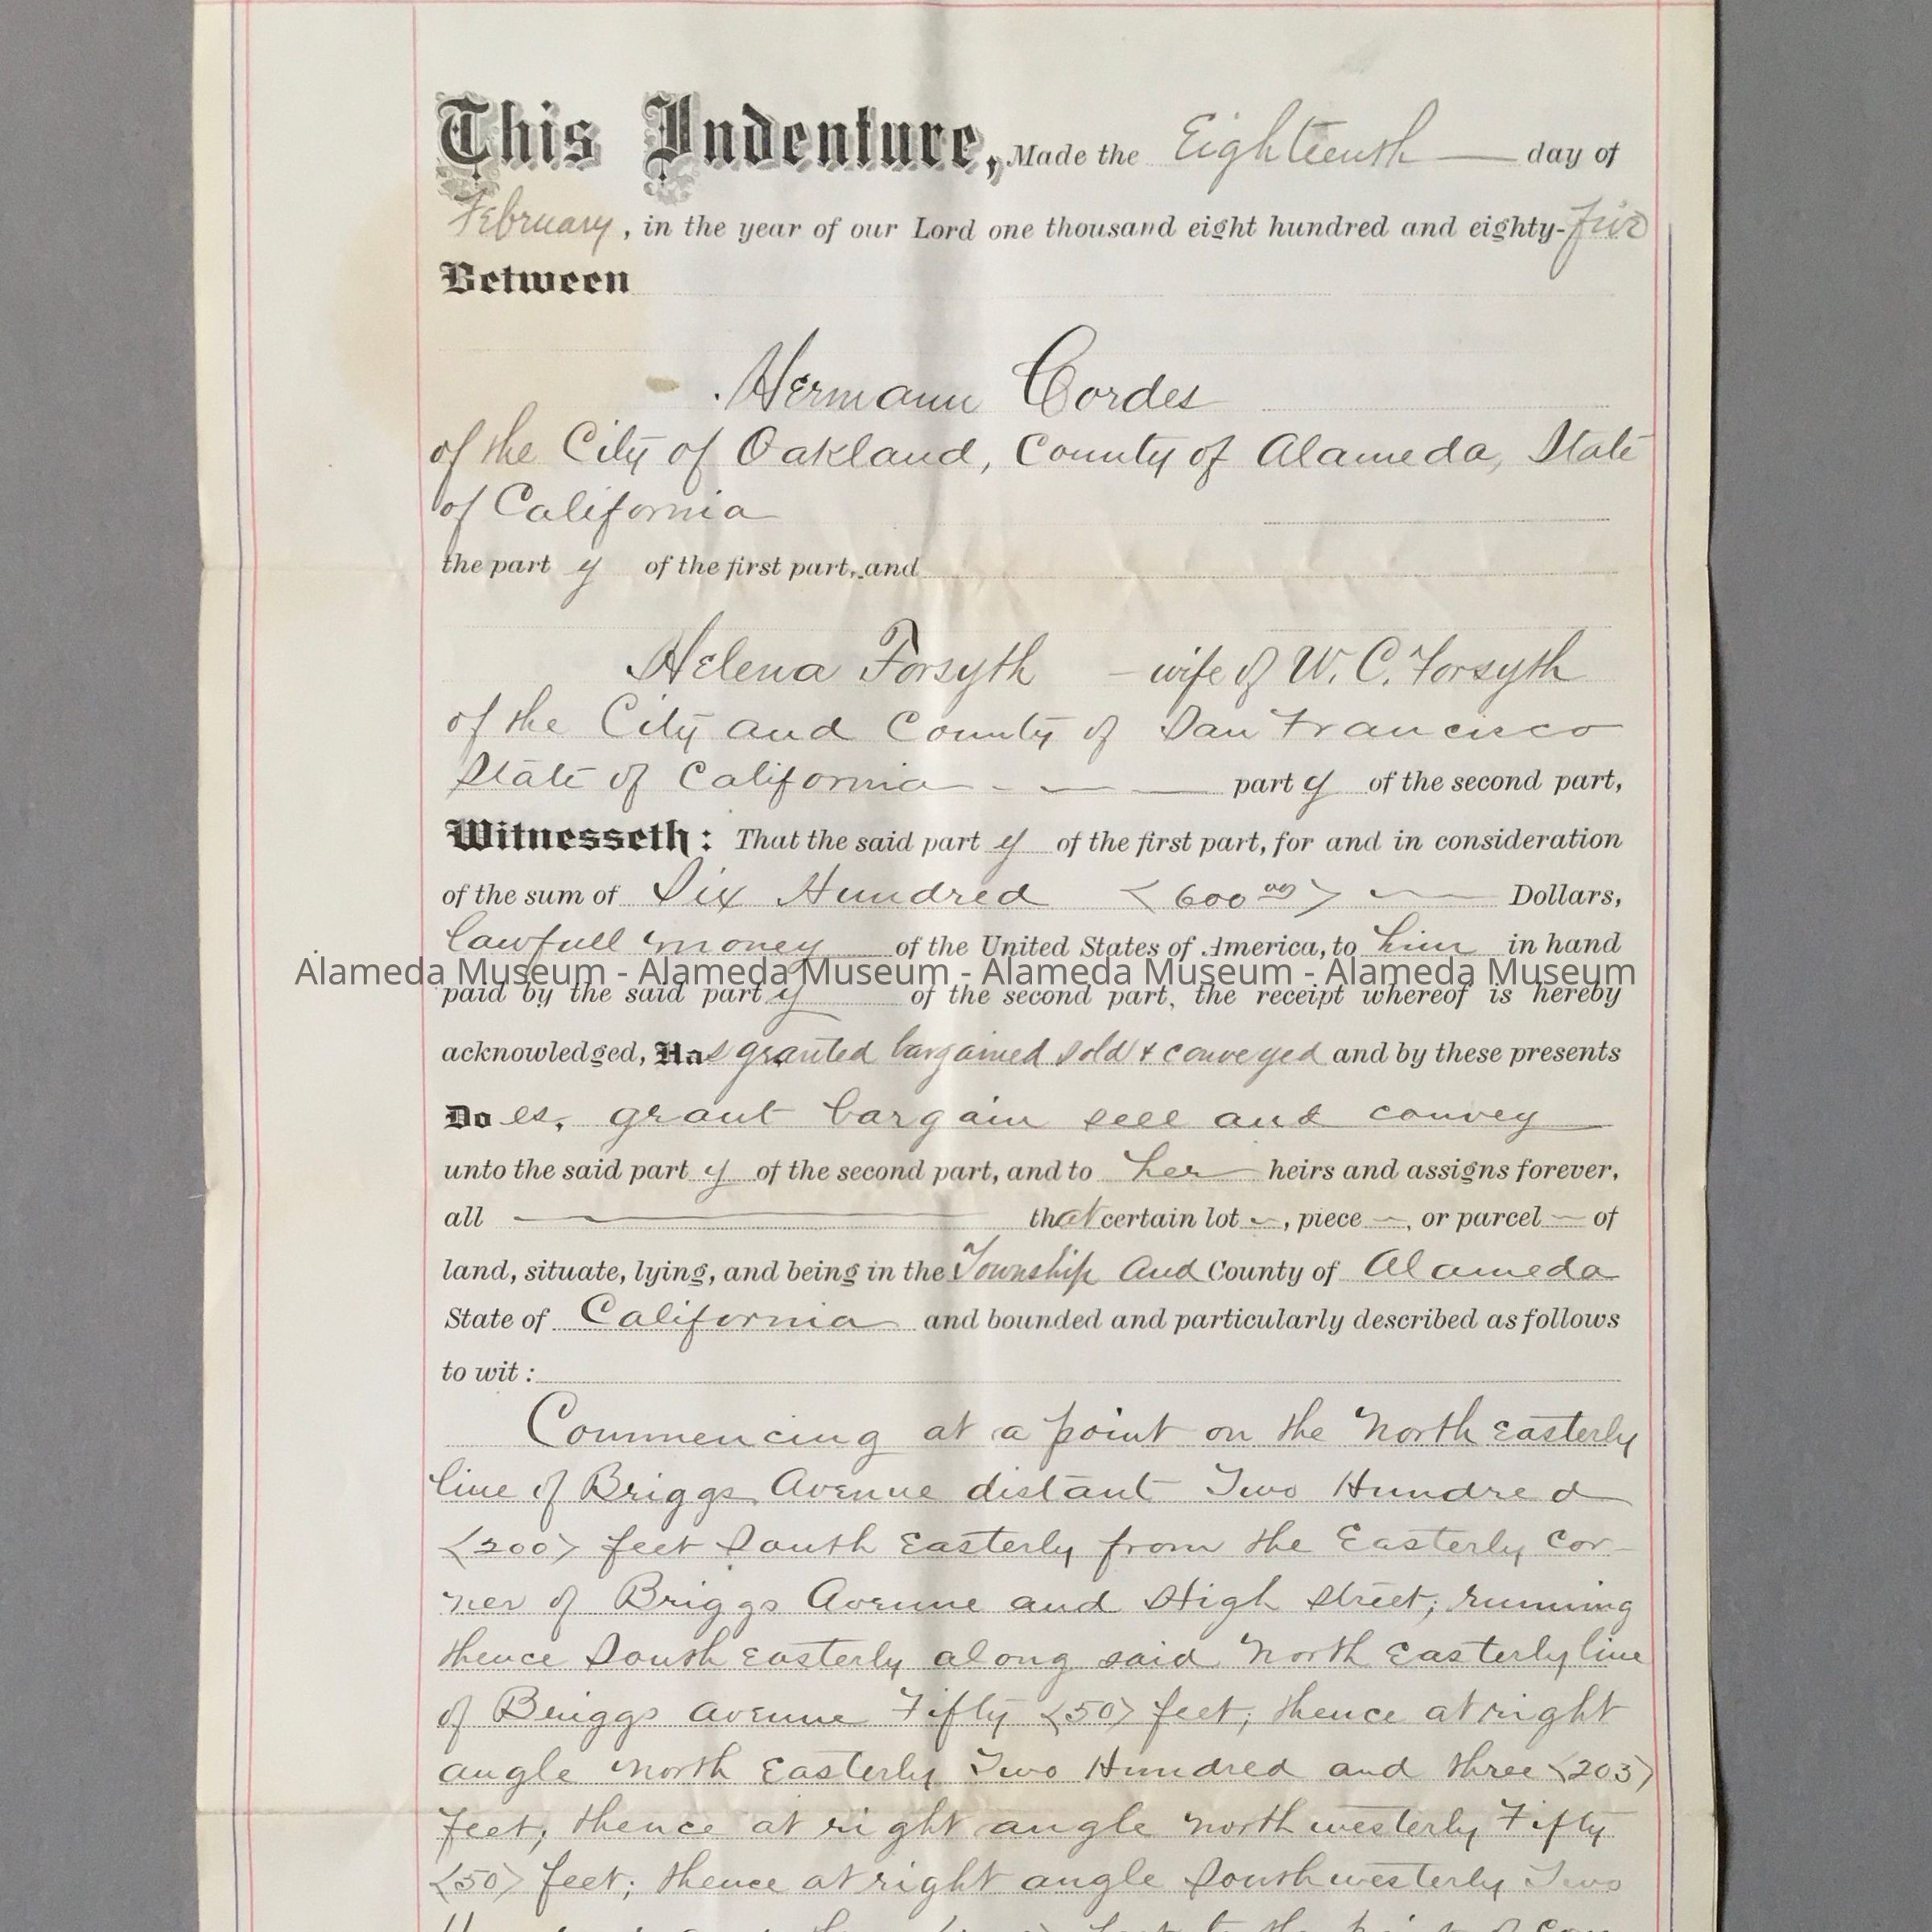 This Indenture, Made the Eighteenth day of
February, in the year of our Lord one thousand eight hundred and eighty-five
Between
Hermann Cordes
of the City of Oakland, County of Alameda, State
of California
the party of the first part, and
Helena Forsyth - wife of W. C. Forsyth
of the City and County of San Francisco
State of California - — — party of the second part,
Witnesseth: That the said party of the first part, for and in consideration
of the sum of Six Hundred <600 00> — Dollars,
lawfull money of the United States of America, to him in hand
Alameda Museum - Alameda Museum - Alameda Museum - Alameda Museum
paid by the said party of the second part, the receipt whereof is hereby
acknowledged, Has granted bargained sold & conveyed and by these presents
Does, grant bargain sell and convey
unto the said party of the second part, and to her heirs and assigns forever,
all — that certain lot —, piece —, or parcel — of
land, situate, lying, and being in the Township and County of Alameda
State of California and bounded and particularly described as follows
to wit:
Commencing at a point on the North Easterly
line of Briggs Avenue distant Two Hundred
<200> feet South Easterly from the Easterly cor-
ner of Briggs Avenue and High Street; running
thence South Easterly along said North Easterly line
of Briggs Avenue Fifty <50> feet; thence at right
angle North Easterly Two Hundred and three <203>
feet; thence at right angle North westerly Fifty
<50> feet; thence at right angle South westerly Two